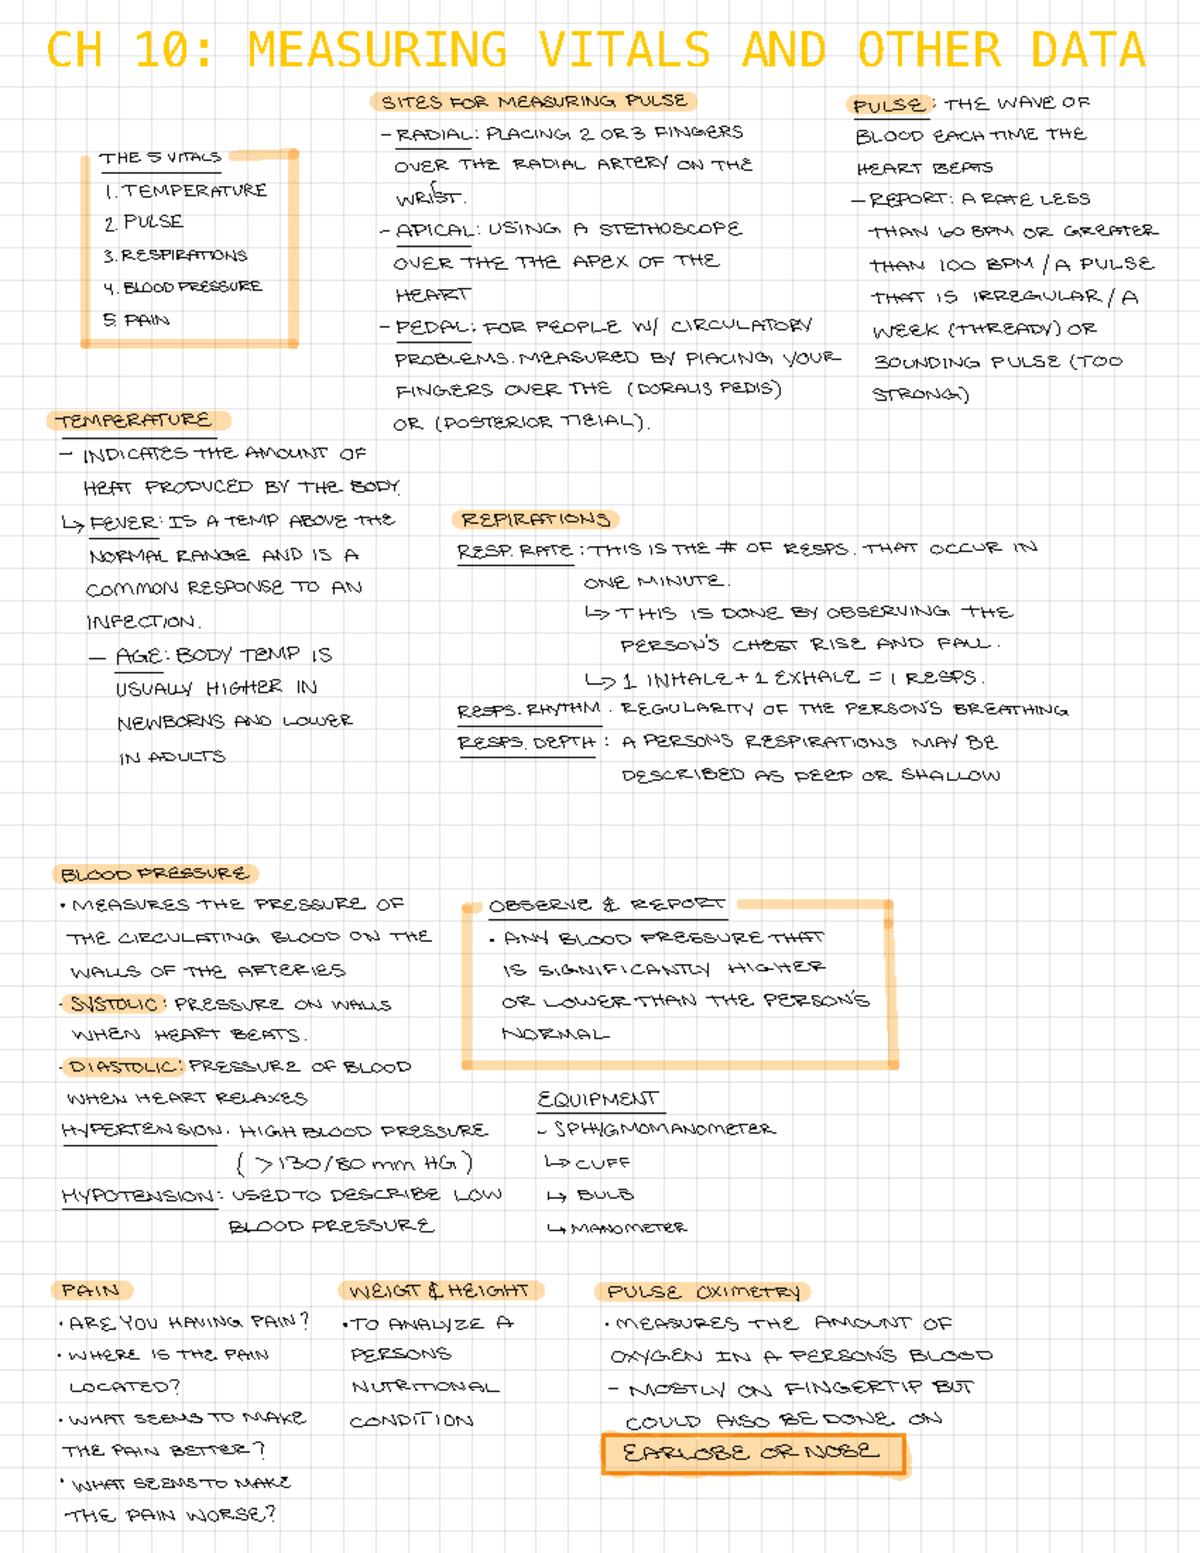 CH 10: MEASURING VITALS AND OTHER DATA
THE 5 VITALS
1. TEMPERATURE
2. PULSE
3. RESPIRATIONS
4. BLOOD PRESSURE
5. PAIN
SITES FOR MEASURING PULSE
- RADIAL: PLACING 2 OR 3 FINGERS
OVER THE RADIAL ARTERY ON THE
WRIST.
- APICAL: USING A STETHOSCOPE
OVER THE THE APEX OF THE
HEART
- PEDAL: FOR PEOPLE W/ CIRCULATORY
PROBLEMS. MEASURED BY PLACING YOUR
FINGERS OVER THE (DORALIS PEDIS)
OR (POSTERIOR TIBIAL).
PULSE: THE WAVE OF
BLOOD EACH TIME THE
HEART BEATS
- REPORT: A RATE LESS
THAN 60 BPM OR GREATER
THAN 100 BPM / A PULSE
THAT IS IRREGULAR / A
WEEK (THREADY) OR
BOUNDING PULSE (TOO
STRONG)
TEMPERATURE
- INDICATES THE AMOUNT OF
HEAT PRODUCED BY THE BODY.
↳ FEVER: IS A TEMP ABOVE THE
NORMAL RANGE AND IS A
COMMON RESPONSE TO AN
INFECTION.
- AGE: BODY TEMP IS
USUALLY HIGHER IN
NEWBORNS AND LOWER
IN ADULTS
REPIRATIONS
RESP. RATE: THIS IS THE # OF RESPS. THAT OCCUR IN
ONE MINUTE.
↳ THIS IS DONE BY OBSERVING THE
PERSON'S CHEST RISE AND FALL.
↳ 1 INHALE + 1 EXHALE = 1 RESPS.
RESPS. RHYTHM. REGULARITY OF THE PERSON'S BREATHING
RESPS. DEPTH: A PERSONS RESPIRATIONS MAY BE
DESCRIBED AS DEEP OR SHALLOW
BLOOD PRESSURE
• MEASURES THE PRESSURE OF
THE CIRCULATING BLOOD ON THE
WALLS OF THE ARTERIES
· SYSTOLIC: PRESSURE ON WALLS
WHEN HEART BEATS.
· DIASTOLIC: PRESSURE OF BLOOD
WHEN HEART RELAXES
HYPERTENSION. HIGH BLOOD PRESSURE
( >130/80 mm HG )
HYPOTENSION: USED TO DESCRIBE LOW
BLOOD PRESSURE
OBSERVE & REPORT
• ANY BLOOD PRESSURE THAT
IS SIGNIFICANTLY HIGHER
OR LOWER THAN THE PERSON'S
NORMAL
EQUIPMENT
- SPHYGMOMANOMETER
↳ CUFF
↳ BULB
↳ MANOMETER
PAIN
• ARE YOU HAVING PAIN?
• WHERE IS THE PAIN
LOCATED?
• WHAT SEEMS TO MAKE
THE PAIN BETTER?
• WHAT SEEMS TO MAKE
THE PAIN WORSE?
WEIGT & HEIGHT
• TO ANALYZE A
PERSONS
NUTRITIONAL
CONDITION
PULSE OXIMETRY
• MEASURES THE AMOUNT OF
OXYGEN IN A PERSON'S BLOOD
- MOSTLY ON FINGERTIP BUT
COULD ALSO BE DONE ON
EARLOBE OR NOSE